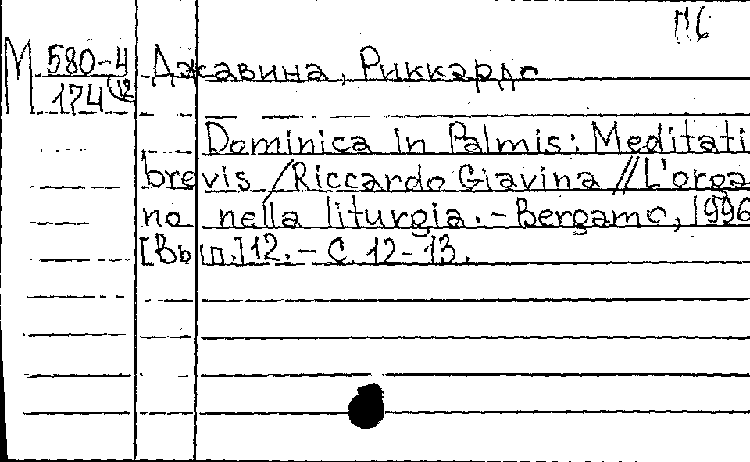 П6
М 580-4 Джавина, Риккардо
174 (12)
Dominica in Palmis: Meditati
brevis / Riccardo Giavina // L'orga
no nella liturgia. - Bergamo, 1996
[Вып.] 12. - С. 12-13.